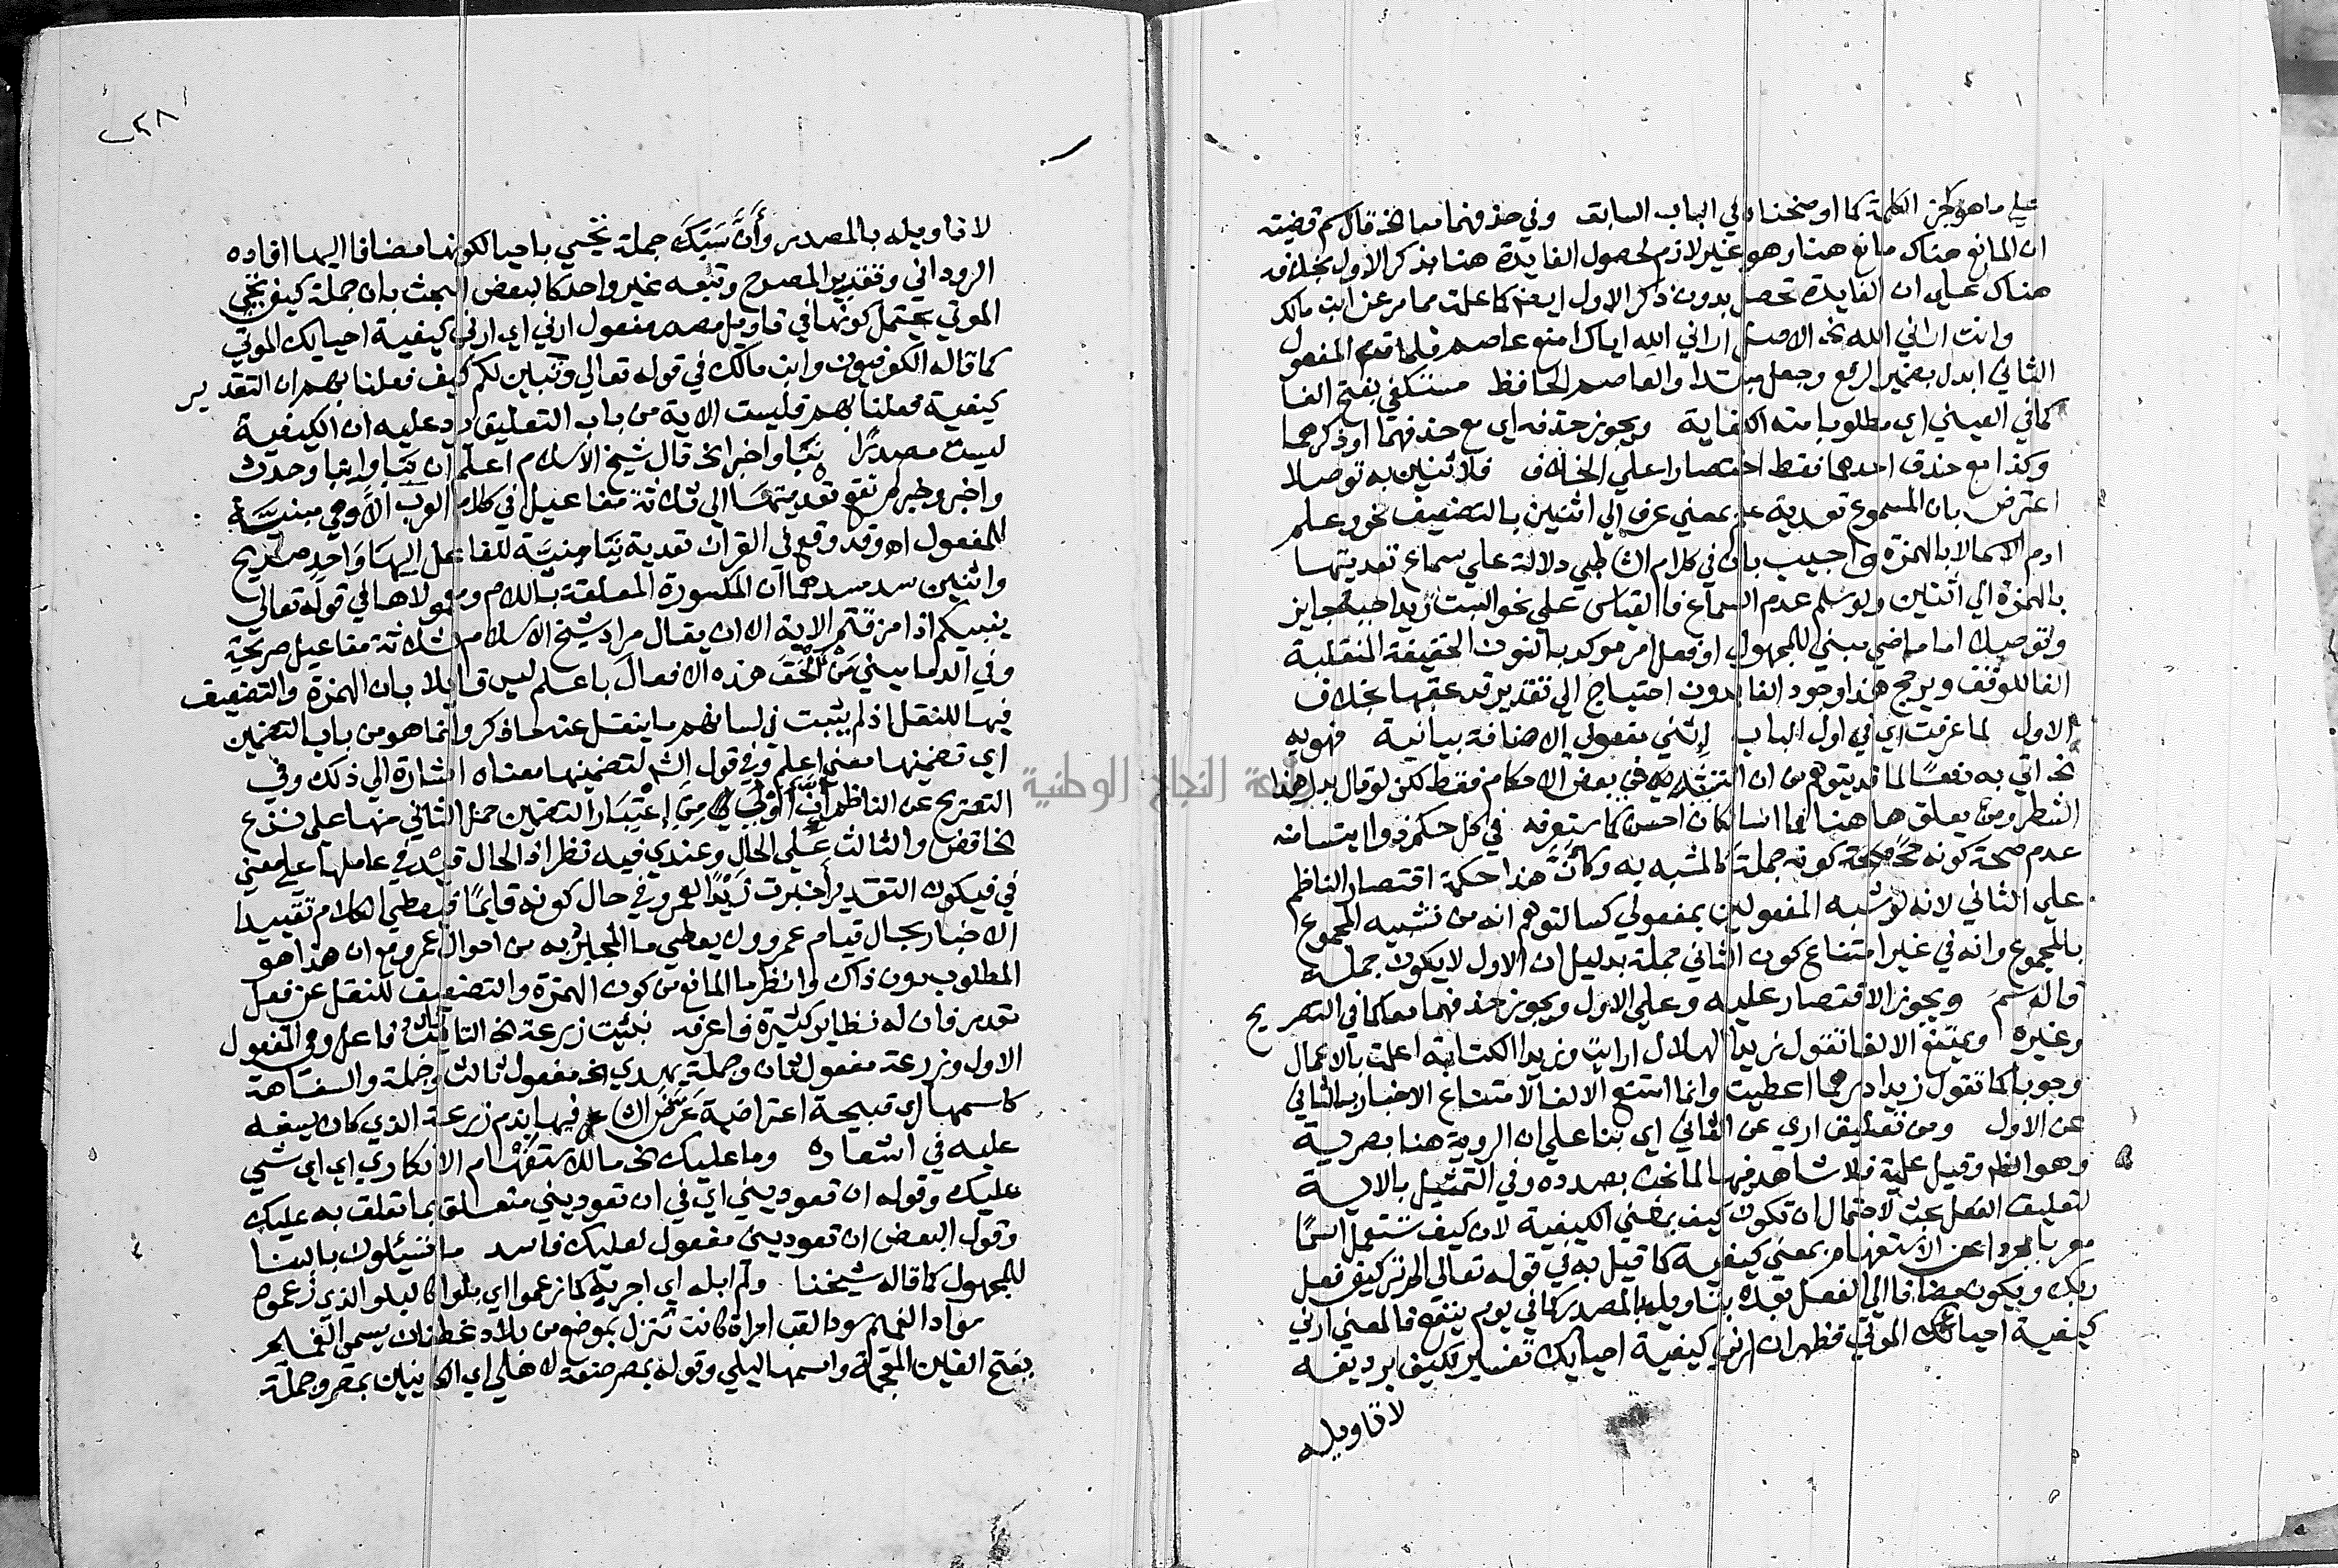 علي ما هو كجزء الكلمة كما اوضحناه في الباب السابق وفي حذفهما معا الخ قال سم قضيته
ان المانع هناك مانع هنا وهو غير لازم لحصول الفايدة هنا بذكر الاول بخلافه
هناك علي ان الفايدة تحصل بدون ذكر الاول ايضا كما علمت مما مر عن ابن مالك
وانت اراني الله الخ الاصل اراني الله اياك امنع عاصم فلما قدم المفعول
الثاني ابدل بضمير الرفع وجعل مبتدا والعاصم الحافظ مستكفي بفتح الفا
كما في العيني اي مطلوبا منه الكفاية ويجوز حذفه اي مع حذفهما او ذكرهما
وكذا مع حذف احدهما فقط اختصارا علي الخلاف فلاثنين به توصلا
اعترض بان المسموع تعدية علم بمعني عرف الي اثنين بالتضعيف نحو وعلم
ادم الاسما لا بالهمزة واجيب بان في كلام الشاطبي دلالة علي سماع تعديتها
بالهمزة الي اثنين ولو سلم عدم السماع فالقياس علي نحو البست زيدا جبة جايز
وتوصلا اما ماضي مبني للمجهول او فعل امر موكد بالنون الخفيفة المنقلبة
الفا للوقف ويرجح هذا وجود الفا بدون احتياج الي تقدير قد عقبها بخلاف
الاول لما عرفت اي في اول الباب اثني مفعولي الاضافة بيانية فهو به
الخ اتي به دفعا لما قد يتوهم من ان التشبيه في بعض الاحكام فقط لكن لو قال بدل هذا
الشطر ومن يعلق هاهنا فما اسا لكان احسن كما ستعرفه في كل حكم ذو ايتسا منه
عدم صحة كونه جملة كالمشبه به وكان هذا حكمة اقتصار الناظم
علي الثاني لانه لو شبه المفعولين بمفعولي كسا لتوهم انه من تشبيه المجموع
بالمجموع وانه في غير امتناع كون الثاني جملة بدليل ان الاول لا يكون جملة
قاله سم ويجوز الاقتصار عليه وعلي الاول ويجوز حذفهما معا كما في التصريح
وغيره ويمتنع الالغا تقول زيدا الهلال ارايت وزيدا الكتابة اعلمت بالاعمال
وجوبا كما تقول زيدا درهما اعطيت وانما امتنع الالغا لامتناع الاخبار بالثاني
عن الاول ومن تعليق اري عن الثاني اي بنا علي ان الروية هنا بصرية
وهو الظ وقيل علمية فلا شاهد فيها لما نحن بصدده وفي التمثيل بالاية
لتعليق الفعل بحث لاحتمال ان تكون كيف بمعني الكيفية لان كيف تستعمل اسما
معربا مجردا عن الاستفهام بمعني كيفية كما قيل به في قوله تعالي الم تر كيف فعل
ربك ويكون مضافا الي الفعل بعده بتاويله بالمصدر كما في يوم ينفع فالمعني ارني
كيفية احيائك الموتي فظهر ان ارني كيفية احيايك تفسير لكيف برديفه
لا تاويله
٢٨١
لا تاويله بالمصدر وان سبك جملة تحيي باحيا لكونها مضافا اليها افاده
الروداني وتقدير المصرح وتبعه غير واحد كالبعض البحث بان جملة كيف تحيي
الموتي يحتمل كونها في تاويل مصدر مفعول ارني اي ارني كيفية احيايك الموتي
كما قاله الكوفيون وابن مالك في قوله تعالي وتبين لكم كيف فعلنا بهم ان التقدير
كيفية فعلنا بهم فليست الاية من باب التعليق يرد عليه ان الكيفية
ليست مصدرا نبا واخبر الخ قال شيخ الاسلام اعلم ان نبا وانبا وحدث
واخبر وخبر لم تقع تعديتها الي ثلاثة مفاعيل في كلام العرب الا وهي مبنية
للمفعول اه وقد وقع في القران تعدية نبا مبنية للفاعل اليها واحد صريح
واثنين سد مسدهما ان المكسورة المعلقة باللام ومعمولاها في قوله تعالي
ينبيكم اذا مزقتم الاية الا ان يقال مراد شيخ الاسلام ثلاثة مفاعيل صريحة
وفي الدماميني من الحق هذه الافعال باعلم ليس قايلا بان الهمزة والتضعيف
فيها للنقل اذ لم يثبت في لسانهم ما ينقل عنه ما ذكر وانما هو من باب التضمين
اي تضمينها معني اعلم وفي قول الش لتضمينها معناه اشارة الي ذلك وفي
التصريح عن الناظم ان اولي من اعتبار التضمين حمل الثاني منها علي نزع
الخافض والثالث علي الحال وعندي فيه نظر اذ الحال قيد في عاملها علي معني
في فيكون التقدير اخبرت زيدا بعمرو في حال كونه قايما فيعطي الكلام تقييدا
الاخبار بحال قيام عمرو ولا يعطي ما المخبر به من احوال عمرو مع ان هذا هو
المطلوب دون ذاك وانظر ما المانع من كون الهمزة والتضعيف للنقل عن فعل
تقدير فان له نظاير كثيرة فاعرفه نبئت زرعة الخ التا نائب فاعل وهي المفعول
الاول وزرعة مفعول ثان وجملة يهدي الخ مفعول ثالث وجملة والسفاهة
كاسمها اي قبيحة اعتراضية عرض الشاعر فيها بذم زرعة الذي كان يسفه
عليه في اشعاره وما عليك الخ ما للاستفهام الانكاري اي اي شي
عليك وقوله ان تعوديني اي في ان تعوديني متعلق بما تعلق به عليك
وقول البعض ان تعوديني مفعول لعليك فاسد ما تسئلون بالبنا
للمجهول كما قاله شيخنا ولم ابله اي اجربه كما زعموا اي بلوا كالبلو الذي زعموه
سودا الغميم سودا لقب امراة كانت تنزل بموضع من بلاد غطفان يسمي الغميم
بفتح الغين المعجمة واسمها ليلي وقوله بمصر صفة لاهلي اي الكاينين بمصر وجملة
جامعة النجاح الوطنية